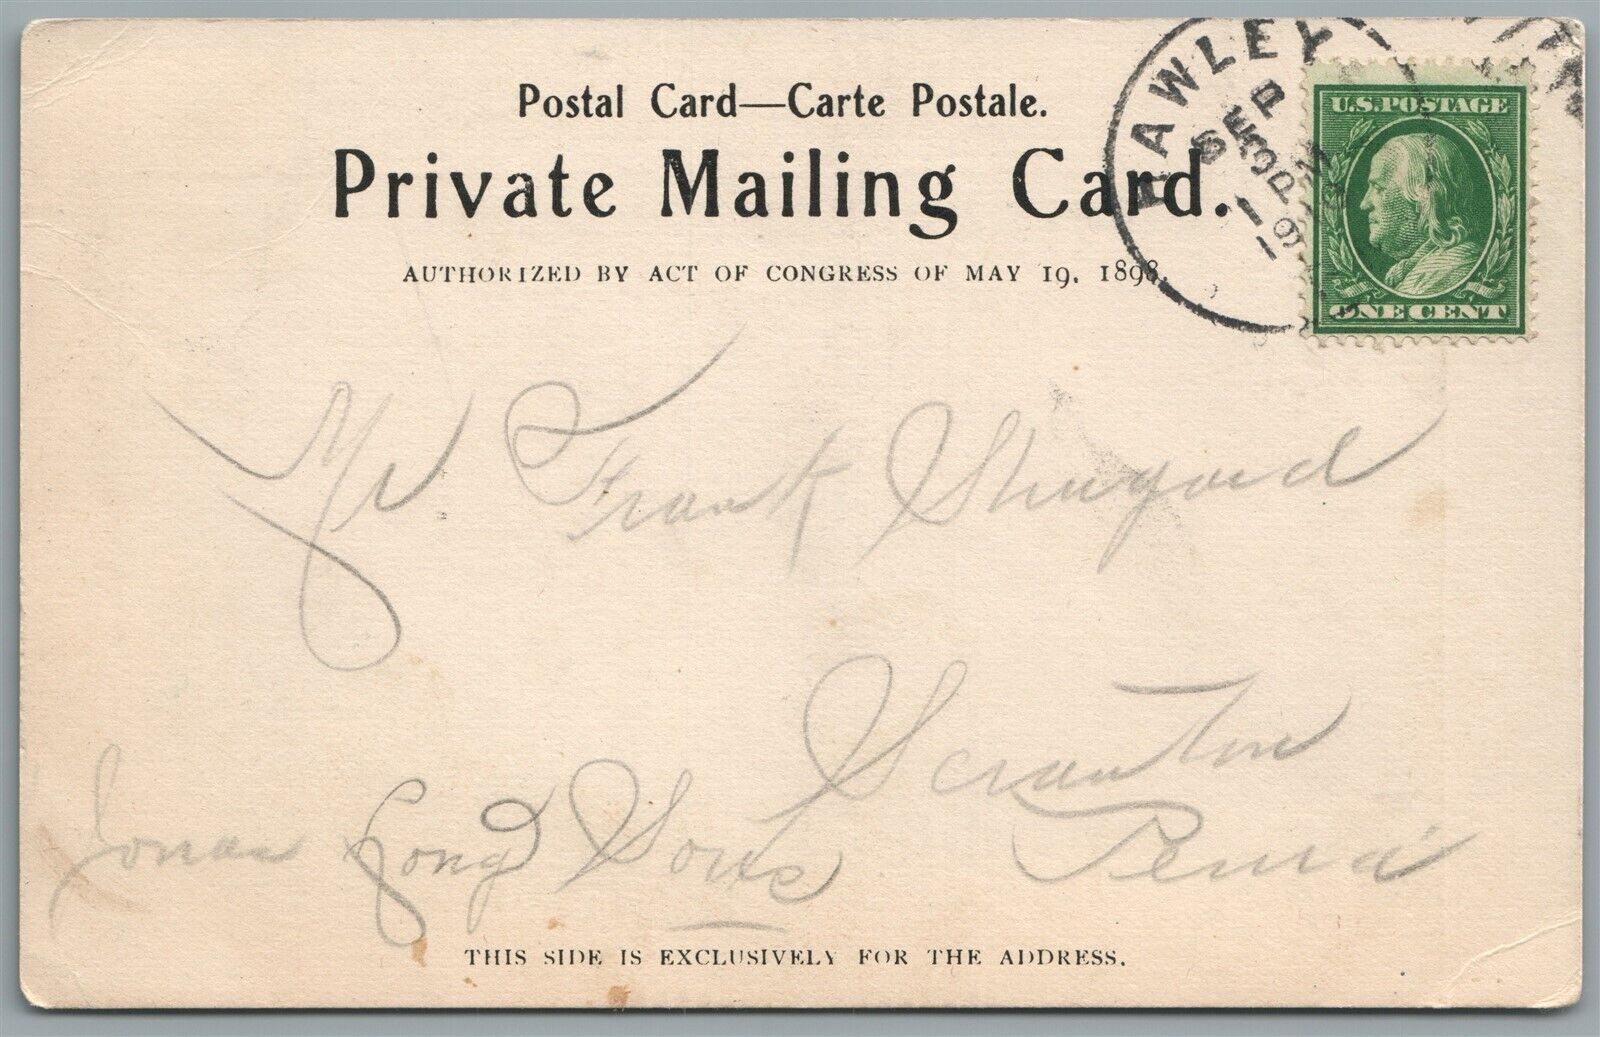 Postal Card—Carte Postale.
Private Mailing Card.
AUTHORIZED BY ACT OF CONGRESS OF MAY 19, 1898.
HAWLEY
SEP
1910
U.S. POSTAGE
ONE CENT
Mr Frank Shugard
Scranton
Penna
Jonas Long Sons
THIS SIDE IS EXCLUSIVELY FOR THE ADDRESS.